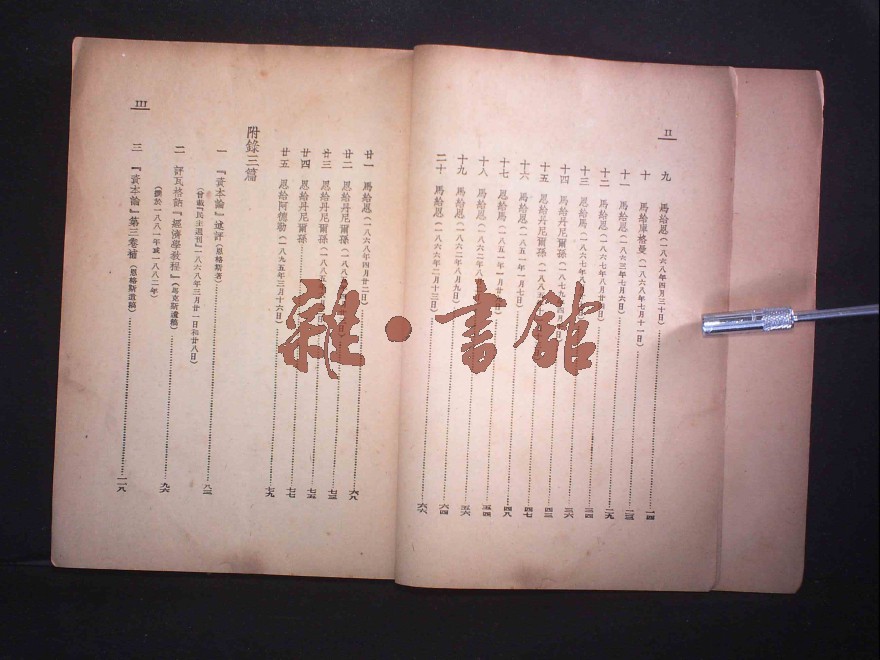 II
九 馬給恩(一八六八年四月三十日)……一四
十 馬給庫格曼(一八六八年七月十一日)……二三
十一 馬給恩(一八六三年七月六日)……二五
十二 馬給恩(一八六七年八月廿四日)……二九
十三 恩給馬(一八六七年八月
十四 馬給丹尼爾孫(一八七九年四月……三六
十五 恩給丹尼爾孫(一八八五年……四三
十六 馬給恩(一八五一年一月七日)……四七
十七 恩給馬(一八五一年一月廿……四八
十八 馬給恩(一八六二年八月……五四
十九 馬給恩(一八六二年八月九日)……五六
二十 馬給恩(一八六六年二月十三日)……六六
III
廿一 馬給恩(一八六八年四月廿二日)……六八
廿二 恩給丹尼爾孫(一八八
廿三 恩給丹尼爾孫(一八八五
廿四 恩給丹尼爾孫……七七
廿五 恩給阿德勒(一八九五年三月十六日)……七九
附錄三篇
一 『資本論』述評(恩格斯著)……八三
(曾載『民主週刊』一八六八年三月廿一日和廿八日)
二 評瓦格納『經濟學教程』(馬克斯遺稿)……九六
(撰於一八八一年或一八八二年)
三 『資本論』第三卷補(恩格斯遺稿)……一一八
雜·書館